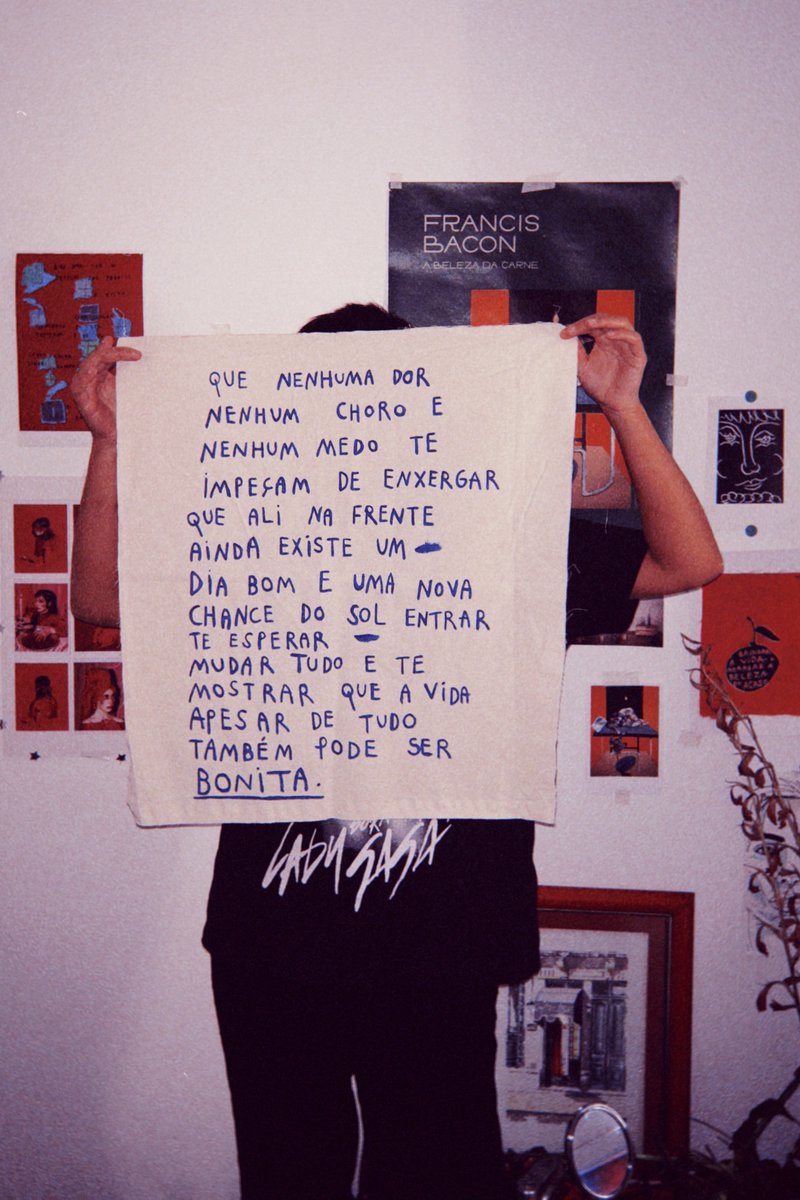 FRANCIS
BACON
A BELEZA DA CARNE
QUE NENHUMA DOR
NENHUM CHORO E
NENHUM MEDO TE
IMPEÇAM DE ENXERGAR
QUE ALI NA FRENTE
AINDA EXISTE UM
DIA BOM E UMA NOVA
CHANCE DO SOL ENTRAR
TE ESPERAR
MUDAR TUDO E TE
MOSTRAR QUE A VIDA
APESAR DE TUDO
TAMBÉM PODE SER
BONITA.
A VIDA
BELEZA
LADY
GAGA